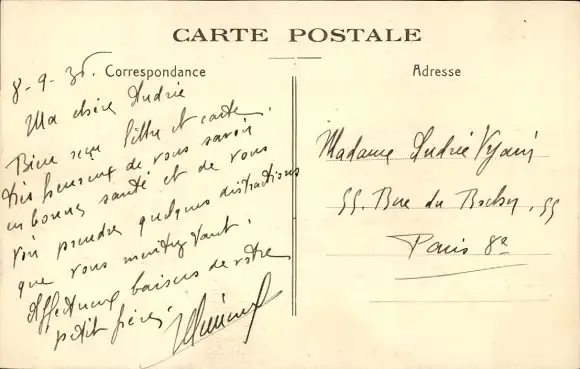 CARTE POSTALE
Correspondance
Adresse
8-9-35.
Ma chère Andrée
Bien reçu lettre et carte.
très heureux de vous savoir
en bonne santé et de vous
voir prendre quelques distractions
que vous méritez tant.
Affectueux baisers de votre
petit frère.
Madame Andrée
55. Rue du Rocher, 55
Paris 8e